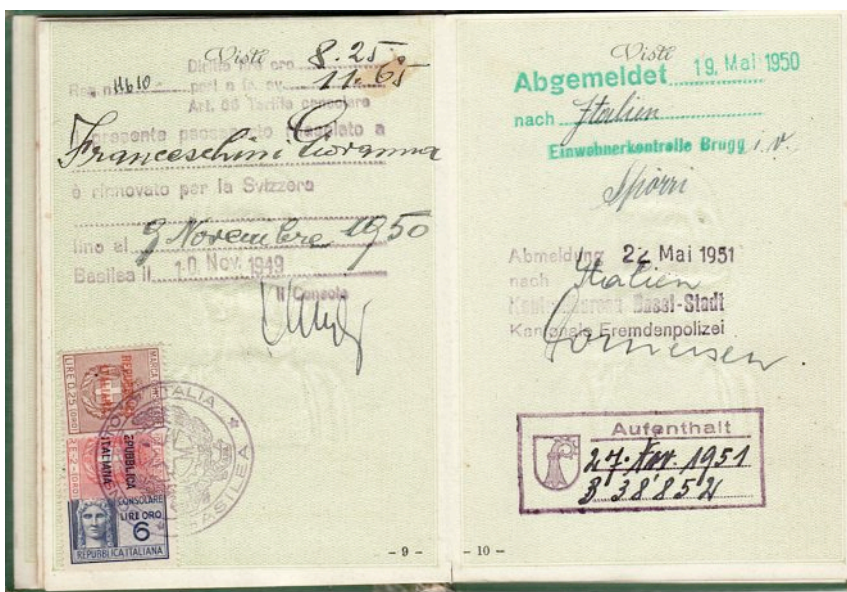 Visti
Diritto lire oro 8.25
Reg. n. 4610 perl a fa. av. 11.65
Art. 66 Tariffa consolare
Il presente passaporto rilasciato a
Franceschini Giovanna
è rinnovato per la Svizzera
fino al 9 Novembre 1950
Basilea il 10. Nov. 1949
Il Console
MARCA
LIRE 0.25 (ORO)
REPUBBLICA
ITALIANA
REPUBBLICA
ITALIANA
LIRE 2 (ORO)
CONSOLARE
LIRE ORO
6
REPUBBLICA ITALIANA
D'ITALIA
BASILEA
- 9 -
Visti
Abgemeldet 19. Mai 1950
nach Italien
Einwohnerkontrolle Brugg i.V.
Spörri
Abmeldung 22 Mai 1951
nach Italien
Kontrollbureau Basel-Stadt
Kantonale Fremdenpolizei
Aufenthalt
27. Nov. 1951
- 10 -